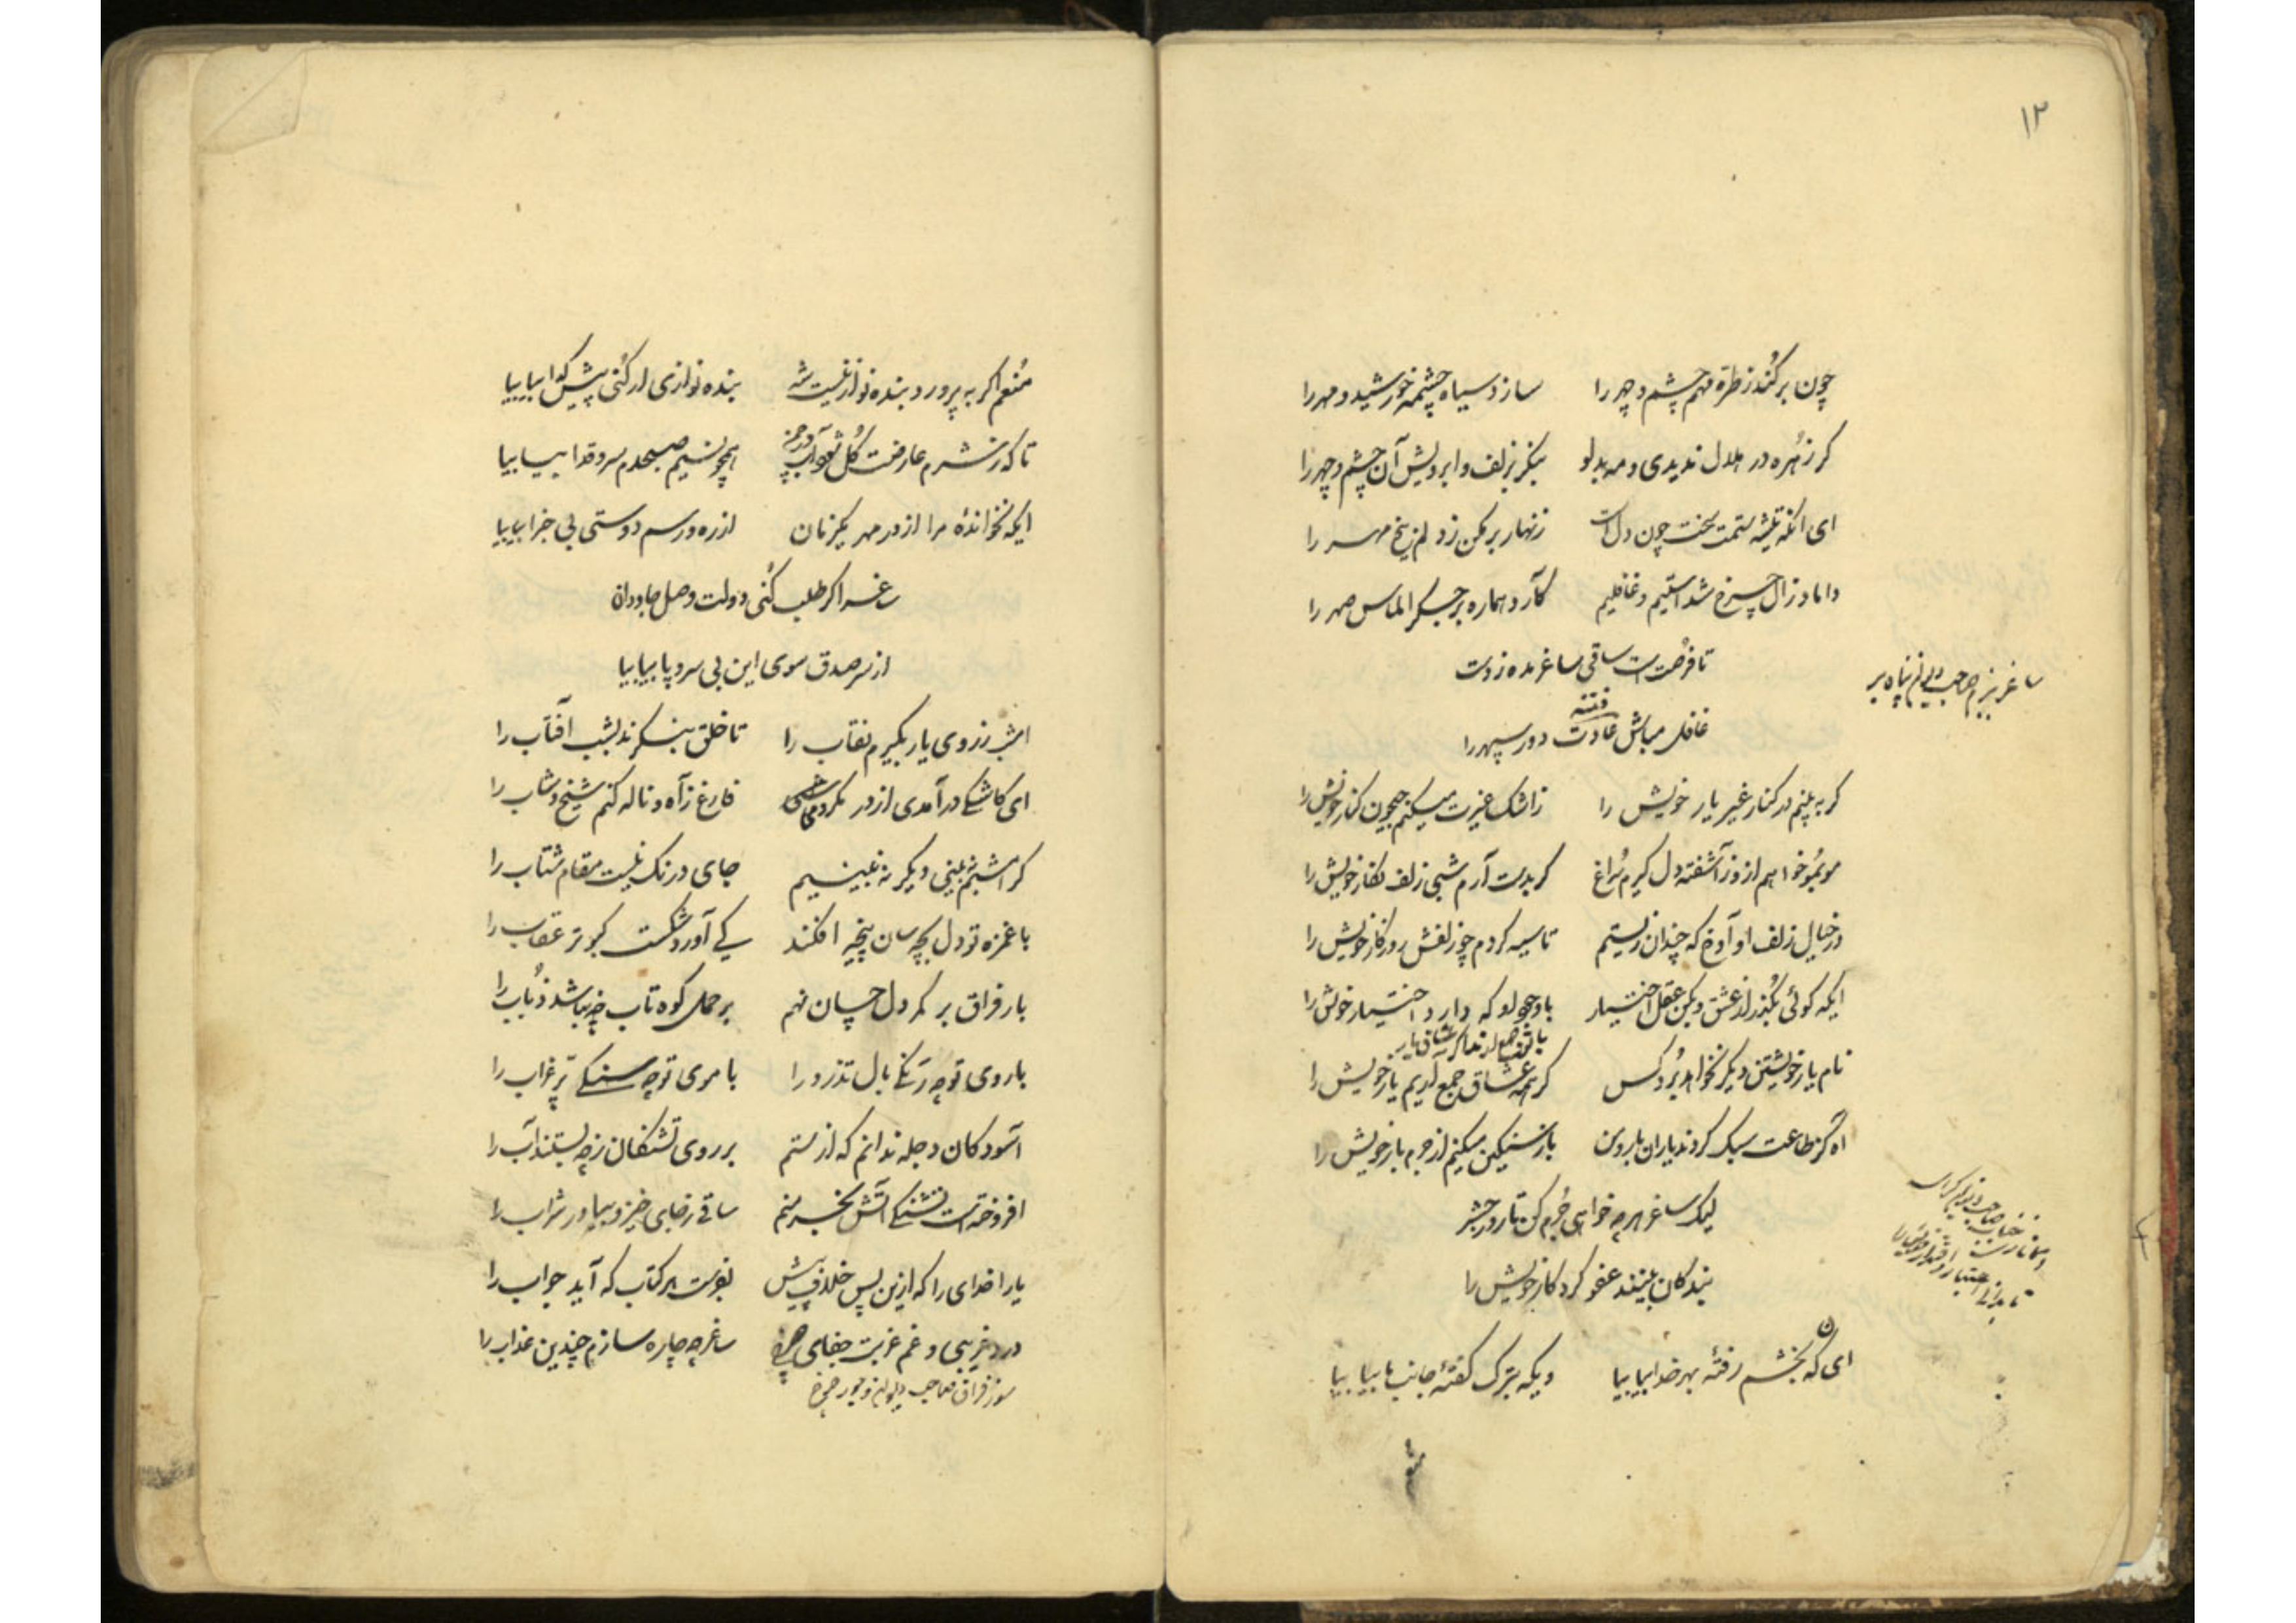 ۱۲
چون برکند ز طره مهم چشم و چهر را سازد سیاه چشمه خورشید و مهر را
گر زهره در هلال ندیدی و مه بدلو بنگر بزلف و ابرویش آن چشم و چهر را
ای آنکه تیشه ستمت سخت چون دل است زنهار بر مکن ز دلم بیخ مهر را
داماد زال چرخ شدستیم و غافلیم کآرد هماره بر جگر الماس مهر را
تا فرصت است ساقی ساغر مده ز دست
ساغر ببزم صاحب دیوان پناه بر
فتنه
غافل مباش عادت دور سپهر را
گر به بینم در کنار غیر یار خویش را ز اشک غیرت میکنم جیحون کنار خویش را
موبمو خواهم ازو ز آشفته دل گیرم سراغ گر بدست آرم شبی زلف نگار خویش را
در خیال زلف او آوخ که چندان زیستم تا سیه کردم چو زلفش روزگار خویش را
ایکه گوئی بگذر از عشق و بکن عقل اختیار با وجود او که دارد اختیار خویش را
نام یار خویشتن دیگر نخواهد برد کس گر همه عشاق جمع آریم یار خویش را
آه کز طاعت سبک کردند یاران بار و من بار سنگین میکنم از جرم بار خویش را
لیک ساغر هرچه خواهی جرم کن تا روز حشر
بندگان بینند عفو کردگار خویش را
ای که بخشم رفتهٔ بهر خدا بیا بیا ویکه بترک گفتهٔ جانب ما بیا بیا
منعم
منعم اگر به پرورد بنده نواز نیست شه بنده نوازی ار کنی پیش گدا بیا بیا
تا که ز شرم عارضت گل شود آب در چمن همچو نسیم صبحدم سرو قدا بیا بیا
ایکه نخواندهٔ مرا از در مهر یکزمان از ره و رسم دوستی بی خبرا بیا بیا
ساغر اگر طلب کنی دولت وصل جاودان
از سر صدق سوی این بی سر و پا بیا بیا
امشب ز روی یار بگیرم نقاب را تا خلق بنگرند بشب آفتاب را
ای کاشکی در آمدی از در فارغ ز آه و ناله کنم شیخ و شاب را
گر امشبم نبینی دیگر نه بینیم جای درنگ نیست مقام شتاب را
با غمزه تو دل بچه سان پنجه افکند کی آورد شکست کبوتر عقاب را
بار فراق بر کمر دل چسان نهم بر حمل کوه تاب چه باشد ذباب را
با روی تو چه رنگی بال تذرو را با موی تو چه سنگی پر غراب را
آسودگان دجله ندانم که از ستم بر روی تشنگان ز چه بستند آب را
افروخته است تشنگی آتش بخرمنم ساقی ز جای خیز و بیاور شراب را
یارا خدای را که ازین پس بنویس هر کتاب که آید جواب را
درد غریبی و غم غربت جفای ساغر چه چاره سازم چندین عذاب را
سوز فراق صاحب دیوان و جور چرخ